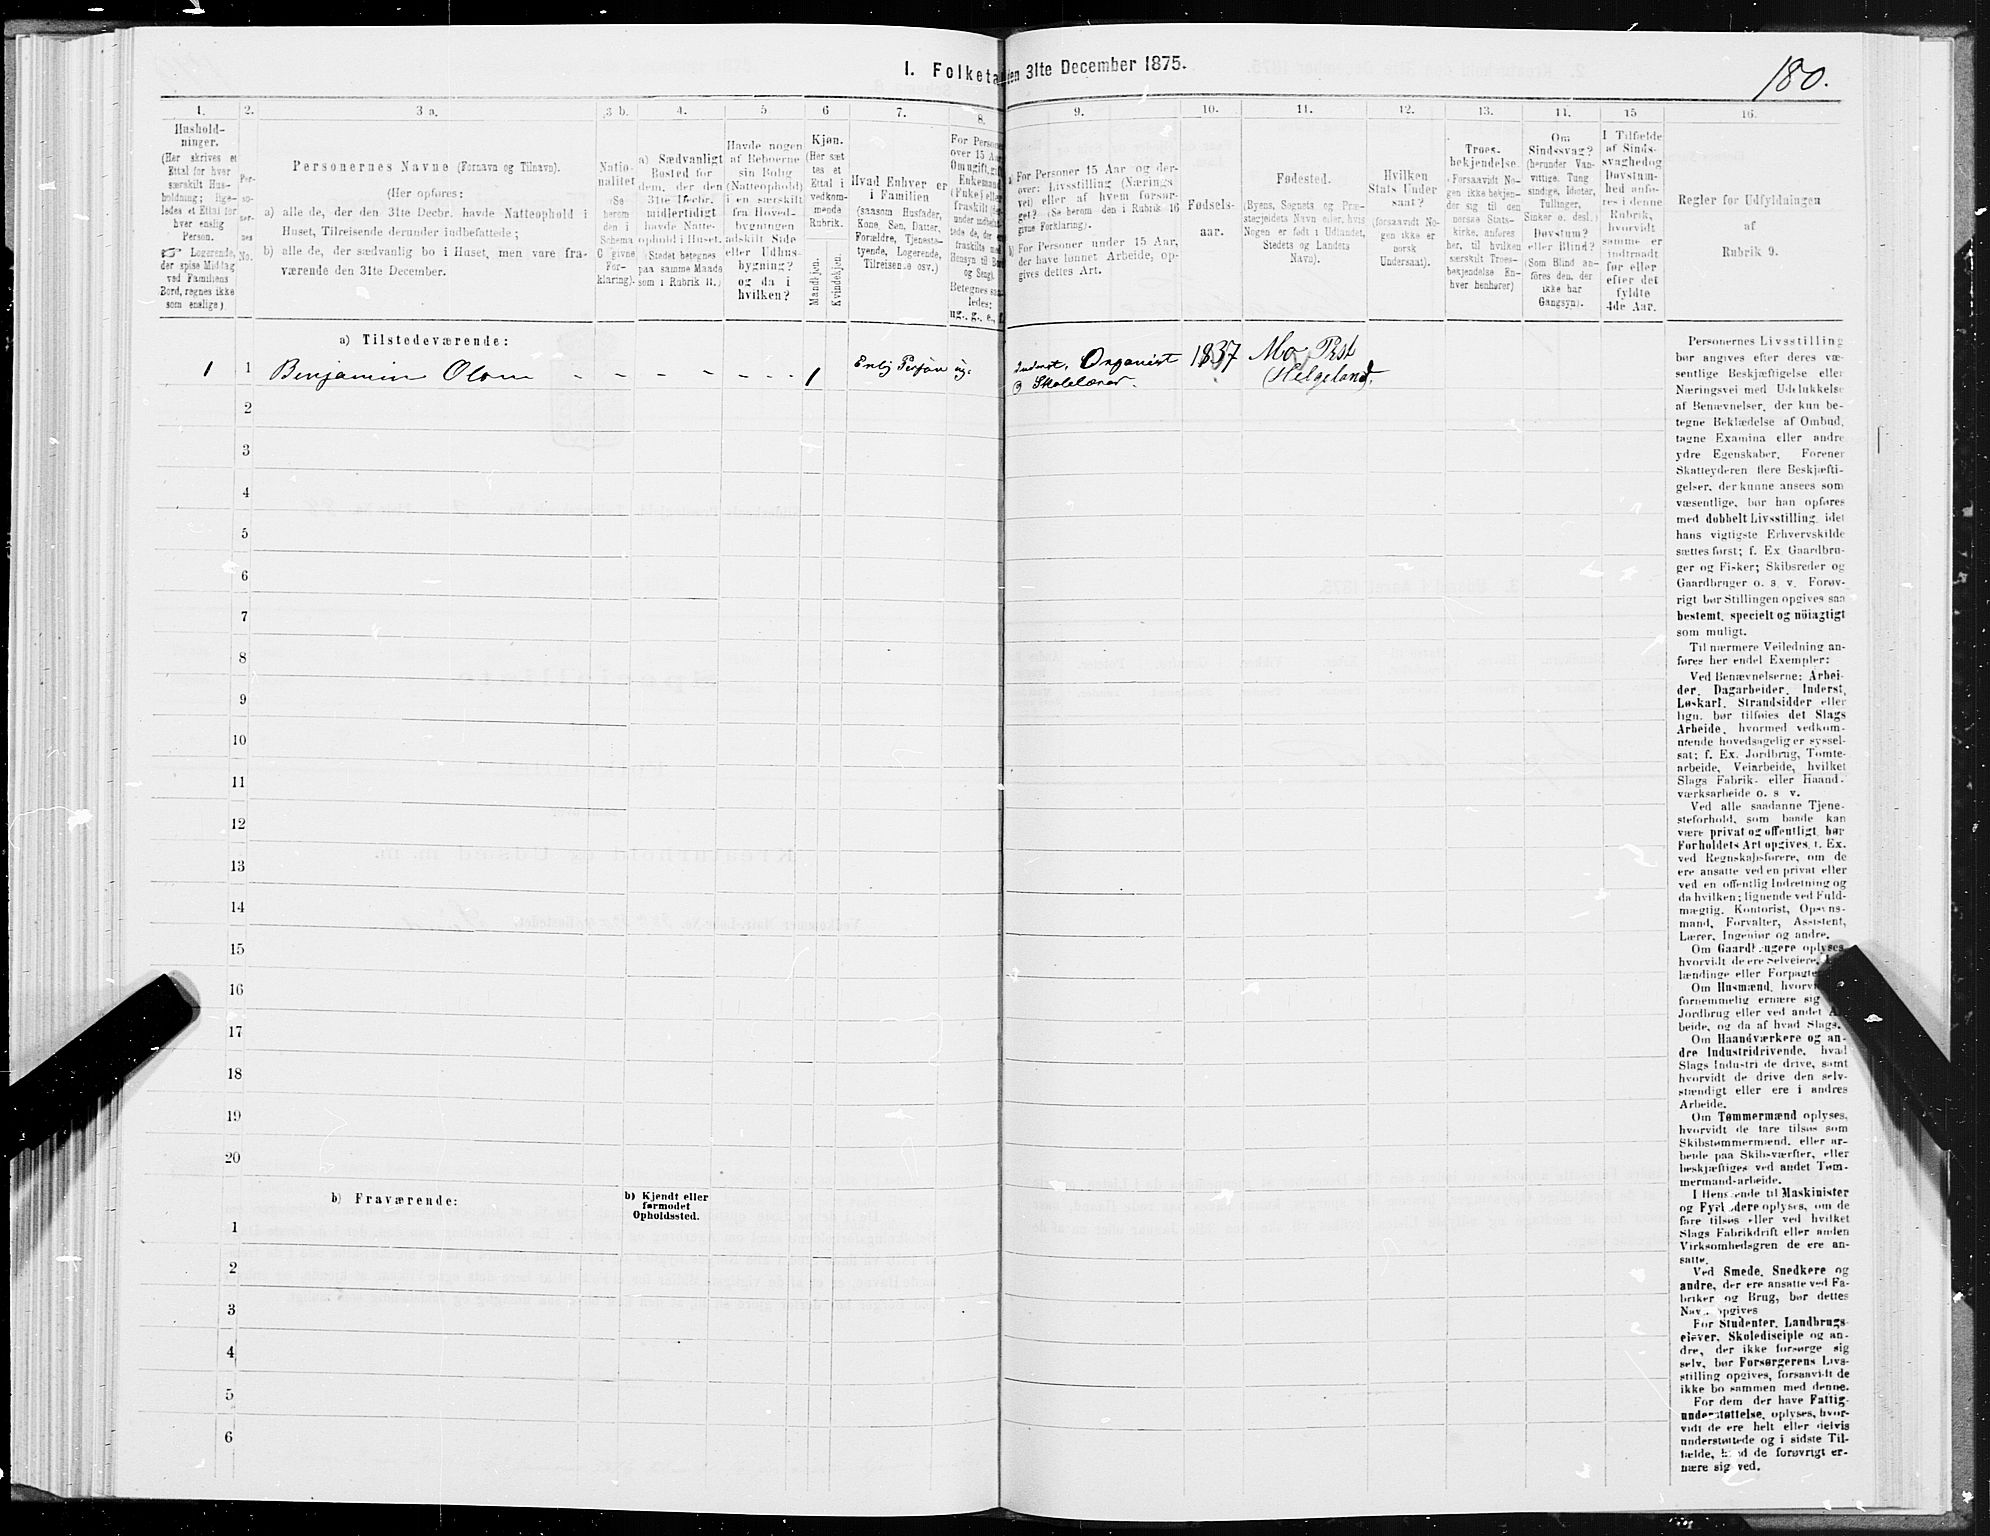 I. Folketa
en 31te December 1875.
180.
1.
2.
3 a.
3 b.
4.
5
6
7.
8.
9.
10.
11.
12.
13.
15
16.
Hushold-
ninger.
(Her skrives et
Ettal for hver
særskilt Hus-
holdning; lige-
ledes et Ettal for
hver enslig
Person.
☞ Logerende,
der spise Middag
ved Familiens
Bord, regnes ikke
som enslige)
Per-
so-
ner-
nes
No.
Personernes Navne (Fornavn og Tilnavn).
(Her opføres:
a) alle de, der den 31te Decbr. havde Natteophold i
Huset, Tilreisende derunder indbefattede;
b) alle de, der sædvanlig bo i Huset, men vare fra-
værende den 31te December.
Natio-
nalitet
(Se
herom
den i
Schema
C givne
For-
klaring).
a) Sædvanligt
Bosted for
dem, der den
31te Decbr.
midlertidigt
havde Natte-
ophold i Huset.
(Stedet betegnes
paa samme Maade
som i Rubrik 11.)
Havde nogen
af Beboerne
sin Bolig
(Natteophold)
i en særskilt
fra Hoved-
bygningen
adskilt Side
eller Udhus-
bygning?
og da i
hvilken?
Kjøn.
(Her sæt
tes et
Ettal i
vedkom-
mende
Rubrik.
Mandkjøn.
Kvindekjøn.
Hvad Enhver er
i Familien
(saasom Husfader,
Kone, Søn, Datter,
Forældre, Tjeneste-
tyende, Logerende,
Tilreisende osv.)
For Persone
over 15 Aa
Om ugift, gi
Enkemand
(Enke) elle
fraskilt
og Seng).
Betegnes saa
ledes:
ug., g., e., f.
a) For Personer 15 Aar og der-
over: Livsstilling (Nærings
vei) eller af hvem forsør-
get? (Se herom den i Rubrik 16
givne Forklaring).
b) For Personer under 15 Aar,
der have lønnet Arbeide, op-
gives dettes Art.
Fødsels-
aar.
Fødested.
(Byens, Sognets og Præ-
stegjeldets Navn eller, hvis
Nogen er født i Udlandet,
Stedets og Landets
Navn).
Hvilken
Stats Under
saat?
(forsaavidt No-
gen ikke er
norsk
Undersaat).
Troes-
bekjendelse.
(Forsaavidt No-
gen ikke bekjen-
der sig til den
norske Stats-
kirke, anføres
her, til hvilken
særskilt Troes-
bekjendelse En-
hver henhører)
Om
Sindssvag?
(herunder Van-
vittige, Tung
sindige, Idioter,
Tullinger,
Sinker o. desl.)
Døvstum?
eller Blind?
(Som Blind an-
føres den, der
ikke har
Gangsyn).
I Tilfælde
af Sinds-
svaghed og
Døvstum-
hed anfø-
res i denne
Rubrik,
hvorvidt
samme er
indtraadt
før eller
efter det
fyldte
4de Aar.
Regler for Udfyldningen
af
Rubrik 9.
a) Tilstedeværende:
1 1 Benjamin Olsen - - - - - - 1 Enlig Person ug. Inderst, Organist 1837 Mo Pst
& Skolelærer. (Helgeland).
2
3
4
5
6
7
8
9
10
11
12
13
14
15
16
17
18
19
20
b) Fraværende:
b) Kjendt eller
formodet
Opholdssted.
1
2
3
4
5
6
Personernes Livsstilling
bør angives efter deres væ-
sentlige Beskjæftigelse eller
Næringsvei med Udelukkelse
af Benævnelser, der kun be-
tegne Beklædelse af Ombud,
tagne Examina eller andre
ydre Egenskaber. Forener
Skatteyderen flere Beskjæfti-
gelser, der kunne ansees som
væsentlige, bør han opføres
med dobbelt Livsstilling, idet
hans vigtigste Erhvervskilde
sættes først; f. Ex Gaardbru-
ger og Fisker; Skibsreder og
Gaardbruger o. s. v. Forøv-
rigt bør Stillingen opgives saa
bestemt, specielt og nöiagtigt
som muligt.
Til nærmere Veiledning an-
føres her endel Exempler:
Ved Benævnelserne: Arbei-
der, Dagarbeider, Inderst,
Løskarl, Strandsidder eller
lign. bør tilføies det Slags
Arbeide, hvormed vedkom-
mende hovedsagelig er syssel-
sat; f. Ex. Jordbrug, Tomte-
arbeide, Veiarbeide, hvilket
Slags Fabrik- eller Haand-
værksarbeide o. s v.
Ved alle saadanne Tjene-
steforhold, som baade kan
være privat og offentligt, bør
Forholdets Art opgives, f. Ex.
ved Regnskabsførere, om de
ere ansatte ved en privat eller
ved en offentlig Indretning og
da hvilken; lignende ved Fuld-
mægtig, Kontorist, Opsyns-
mand, Forvalter, Assistent,
Lærer, Ingeniør og andre.
Om Gaardbrugere oplyses,
hvorvidt de ere Selveiere,
lændinge eller Forpagte
Om Husmænd, hvorv
fornemmelig ernære sig
Jordbrug eller ved andet A
beide, og da af hvad Slags.
Om Haandværkere og an-
dre Industridrivende, hvad
Slags Industri de drive, samt
hvorvidt de drive den selv-
stændigt eller ere i andres
Arbeide.
Om Tømmermænd oplyses,
hvorvidt de fare tilsøs som
Skibstømmermænd, eller ar-
beide paa Skibsværfter, eller
beskjæftiges ved andet Tøm-
mermand-arbeide.
I Henseende til Maskinister
og Fyrbødere oplyses, om de
fare tilsøs eller ved hvilket
Slags Fabrikdrift eller anden
Virksomhedsgren de ere an-
satte.
Ved Smede, Snedkere og
andre, der ere ansatte ved Fa-
briker og Brug, bør dettes
Navn opgives
For Studenter, Landbrugs-
elever, Skoledisciple og an-
dre, der ikke forsørge sig
selv, bør Forsørgerens Livs-
stilling opgives, forsaavidt de
ikke bo sammen med denne.
For dem der have Fattig-
understøttelse, oplyses, hvor-
vidt de ere helt eller delvis
understøttede og i sidste Til-
fælde, hvad de forøvrigt er-
nære sig ved.